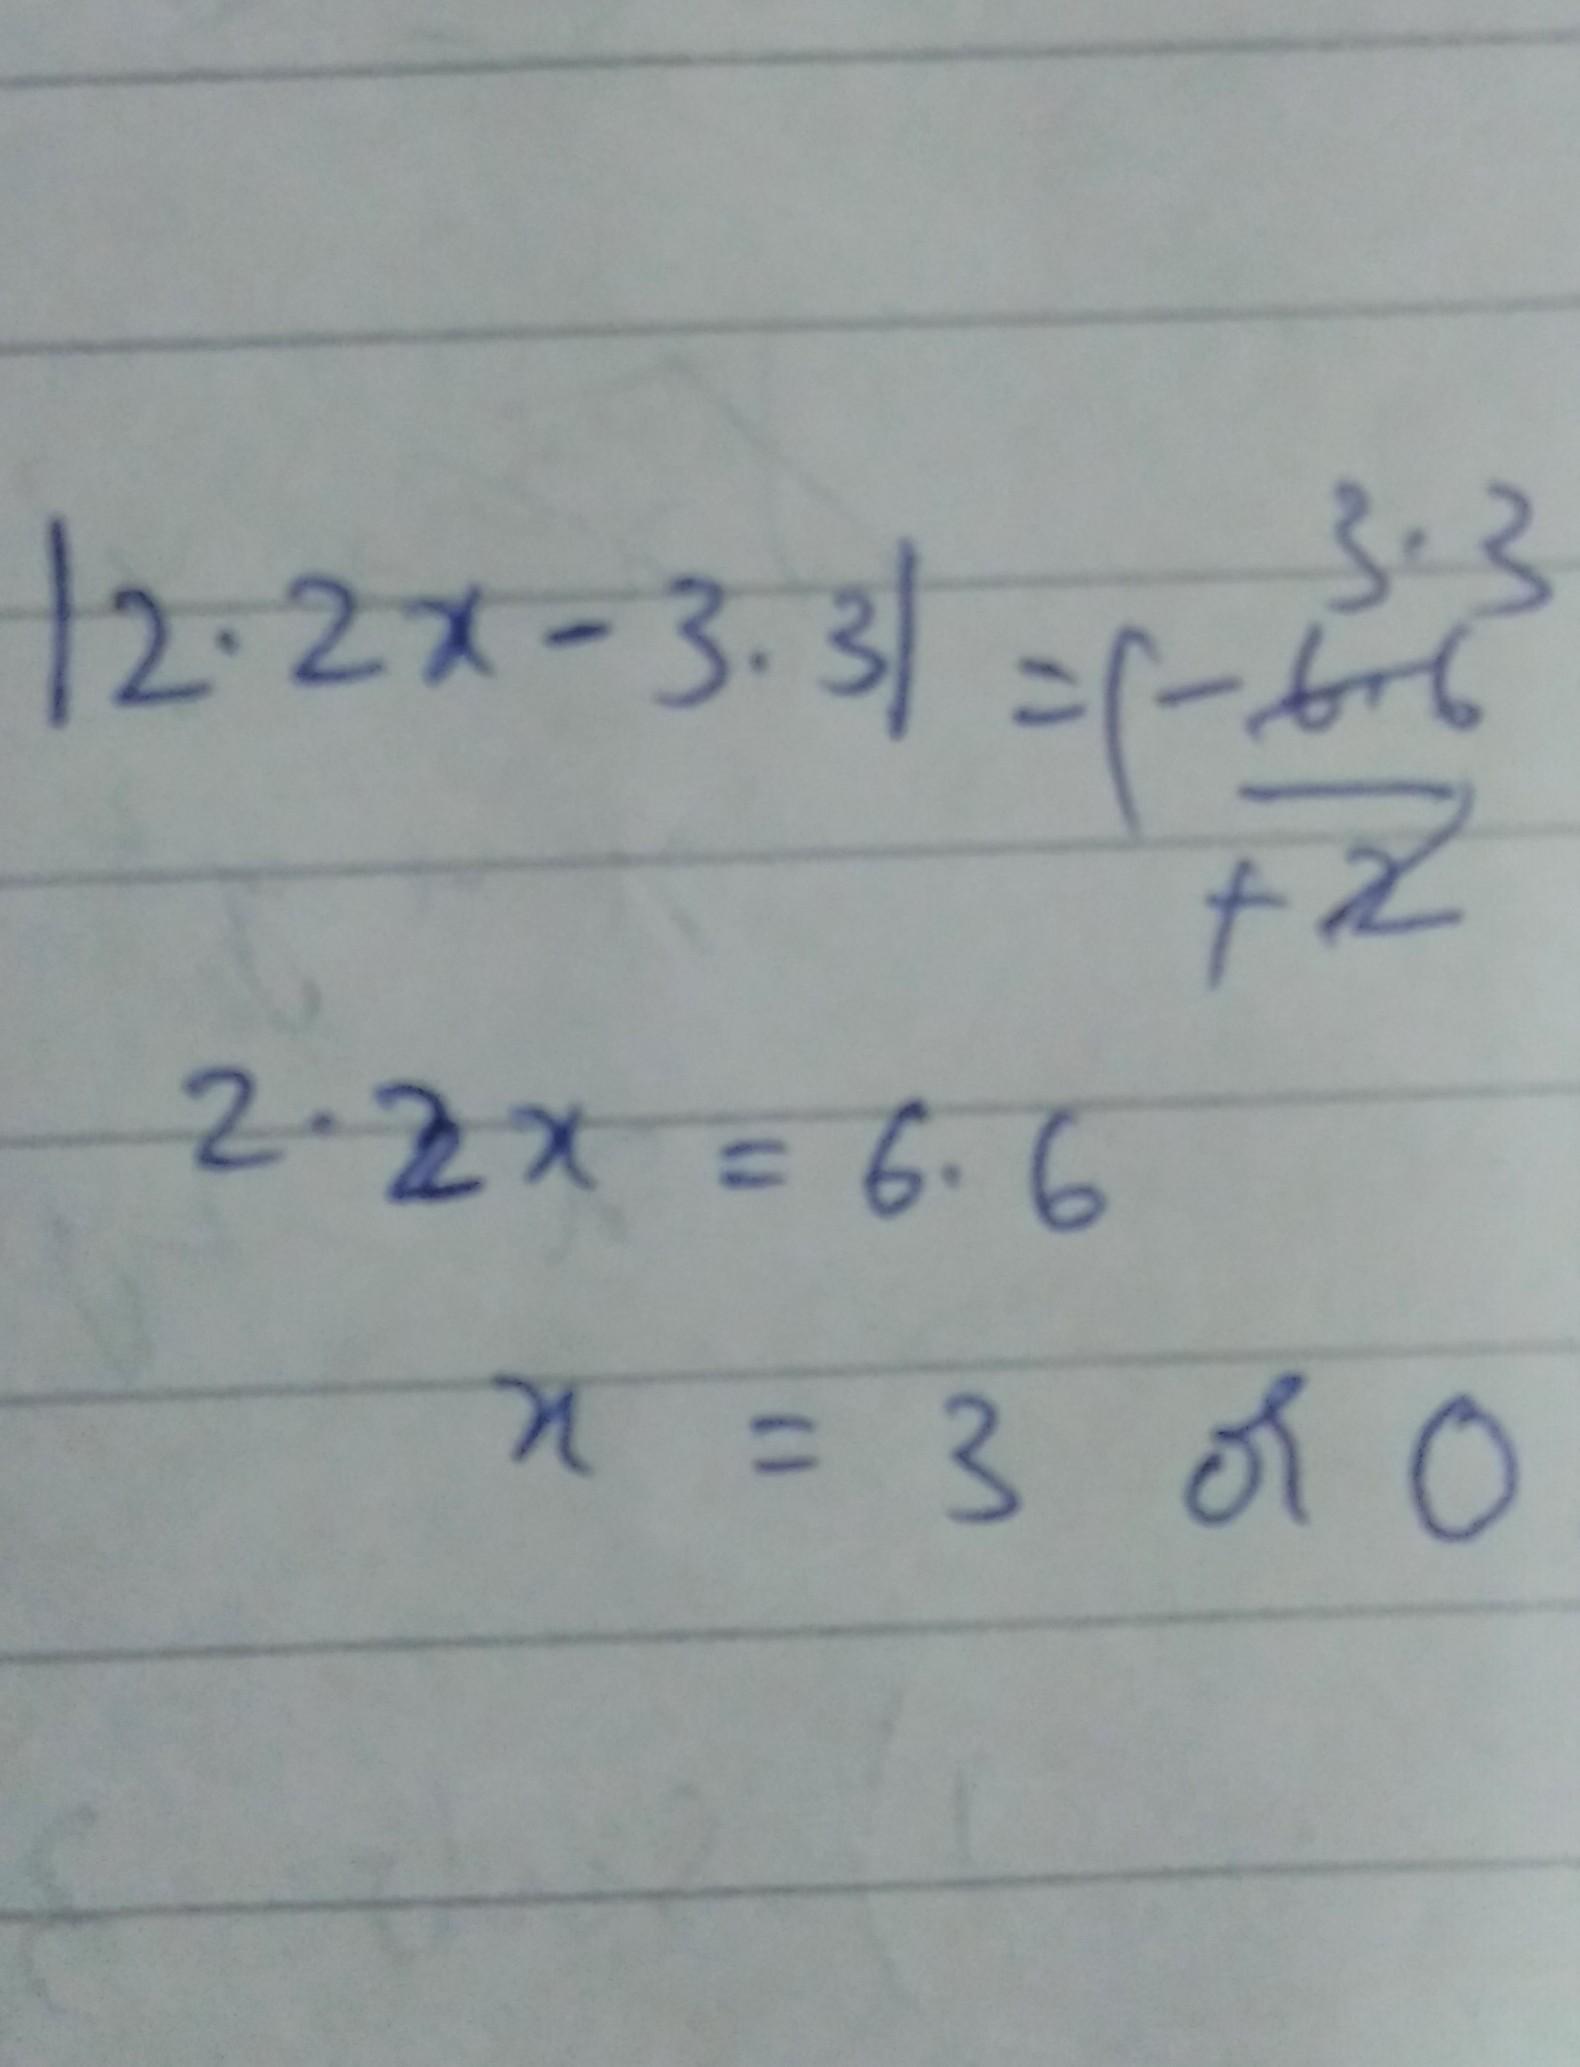 |2.2x - 3.3| = (- 6.6/+2 3.3
2.2x = 6.6
x = 3 or 0